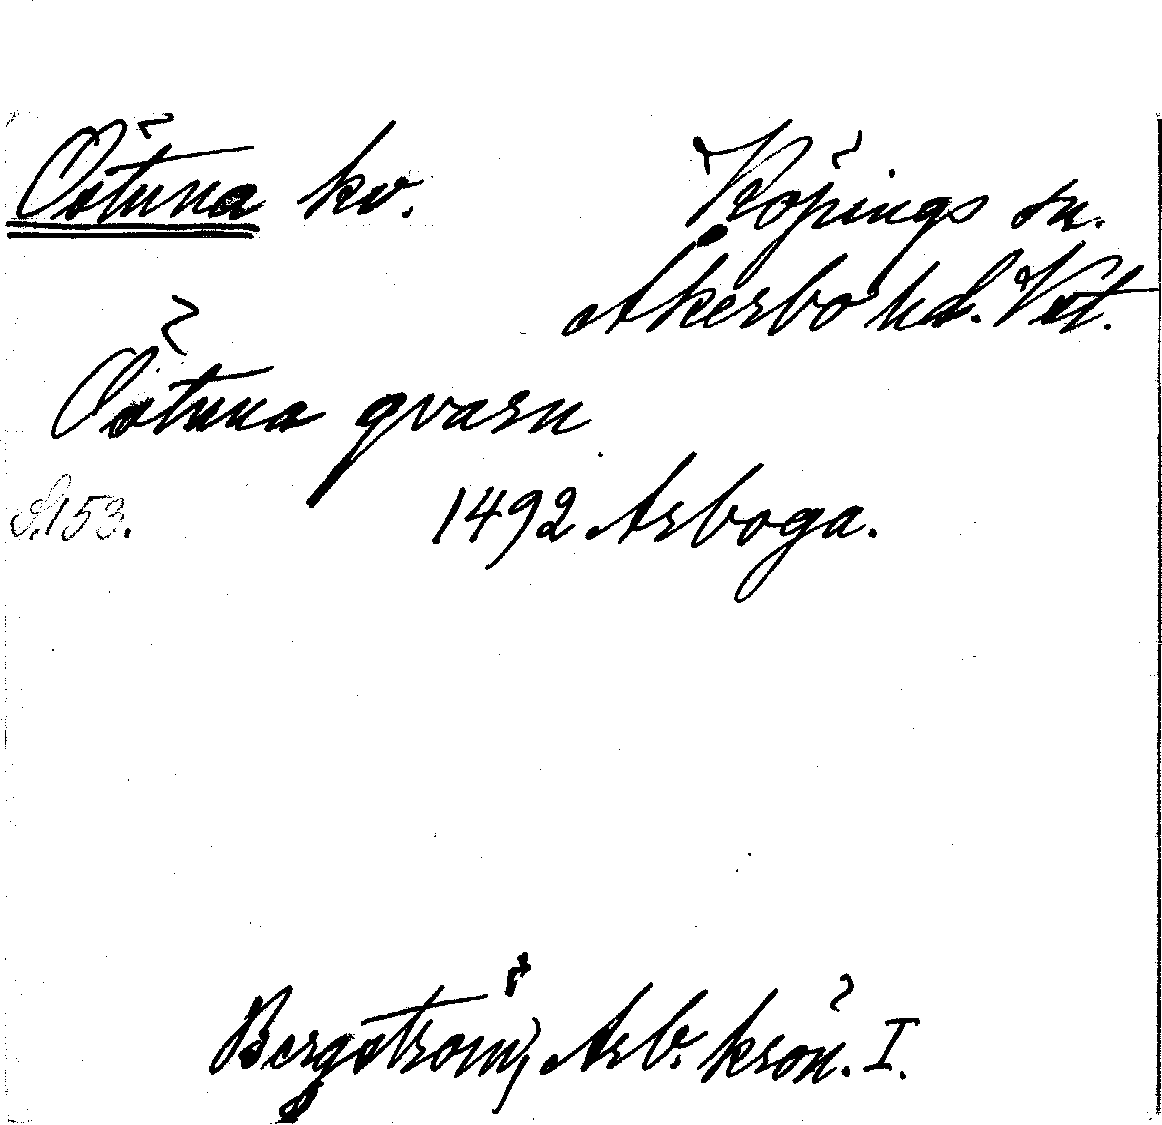 Östuna kv. Köpings sn.
Åkerbo hd. Vstm.
Östuna qvarn
S. 153. 1492 Arboga.
Bergström, Arb. krön. I.